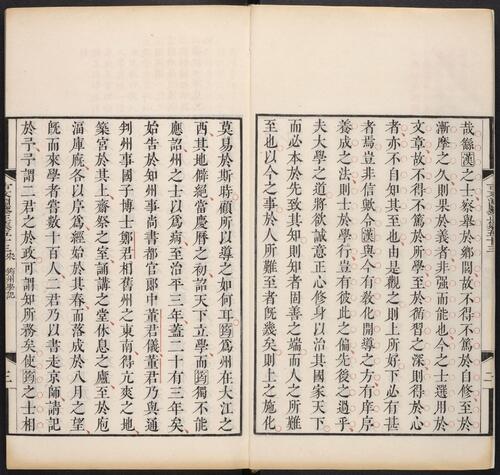 哉繇漢之士察舉於鄉閭故不得不篤於自修至於
漸摩之久則果於義者非强而能也今之士選用於
文章故不得不篤於所學至於循習之深則得於心
者亦不自知其至也由是觀之則上所好下必有甚
者焉豈非信歟令漢與今有敎化開導之方有庠序
養成之法則士於學行豈有彼此之偏先後之過乎
夫大學之道將欲誠意正心修身以治其國家天下
而必本於先致其知則知者固善之端而人之所難
至也以今之事於人所難至者旣幾矣則上之施化
二
筠州學記
三
莫易於斯時顧所以導之如何耳筠爲州在大江之
西其地僻絕當慶曆之初詔天下立學而筠獨不能
應詔州之士以爲病至治平三年蓋二十有三年矣
始告於知州事尚書都官郎中董君儀董君乃與通
判州事國子博士鄭君相舊州之東南得亢爽之地
築宮於其上齋祭之室誦講之堂休息之廬至於庖
湢庫廐各以序爲經始於其春而落成於八月之望
旣而來學者嘗數十百人二君乃以書走京師請記
於予予謂二君之於政可謂知所務矣使筠之士相